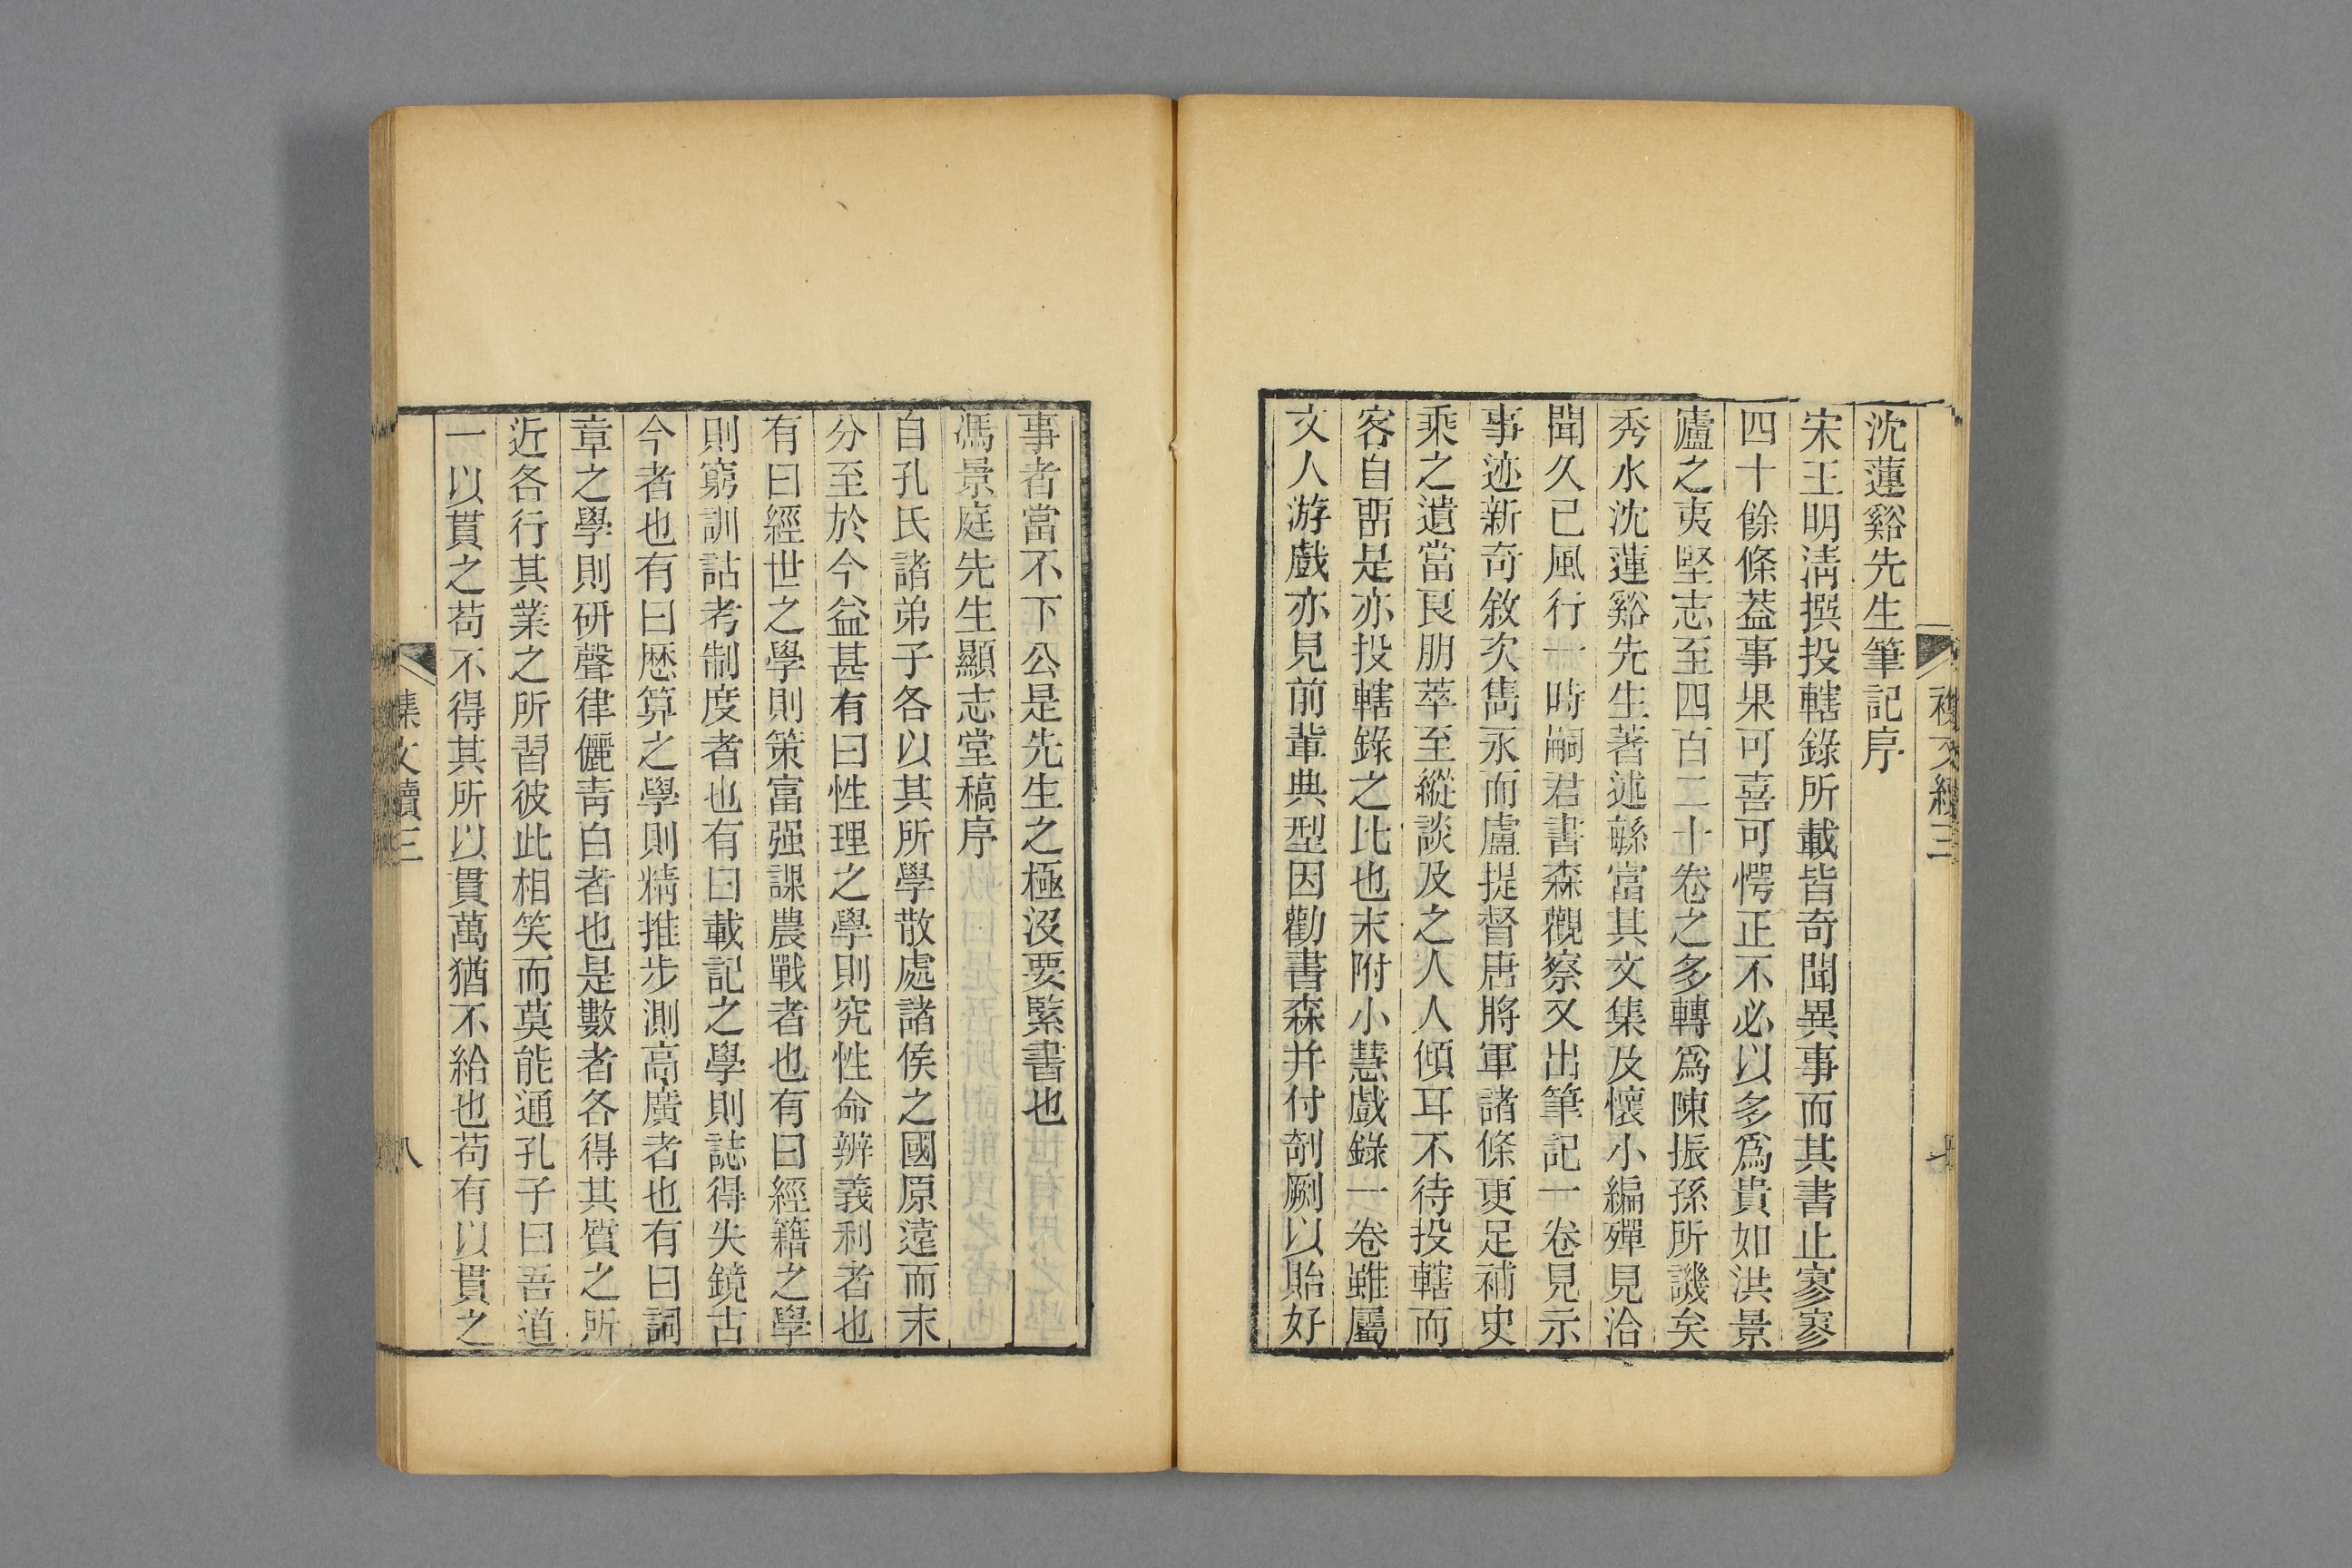 沈蓮谿先生筆記序
宋王明淸撰投轄錄所載皆奇聞異事而其書止寥寥
四十餘條葢事果可喜可愕正不必以多爲貴如洪景
廬之夷堅志至四百二十卷之多轉爲陳振孫所譏矣
秀水沈蓮谿先生著述緐富其文集及懷小編殫見洽
聞久已風行一時嗣君書森觀察又出筆記一卷見示
事迹新奇敘次雋永而盧提督唐將軍諸條更足補史
乘之遺當良朋萃至縱談及之人人傾耳不待投轄而
客自畱是亦投轄錄之比也末附小慧戲錄一卷雖屬
文人游戲亦見前輩典型因勸書森并付剞劂以貽好
事者當不下公是先生之極沒要緊書也
馮景庭先生顯志堂稿序
自孔氏諸弟子各以其所學散處諸侯之國原遠而末
分至於今益甚有曰性理之學則究性命辨義利者也
有曰經世之學則策富强課農戰者也有曰經籍之學
則窮訓詁考制度者也有曰載記之學則誌得失鏡古
今者也有曰厯算之學則精推步測高廣者也有曰詞
章之學則研聲律儷靑白者也是數者各得其質之所
近各行其業之所習彼此相笑而莫能通孔子曰吾道
一以貫之苟不得其所以貫萬猶不給也苟有以貫之
集文續三
八